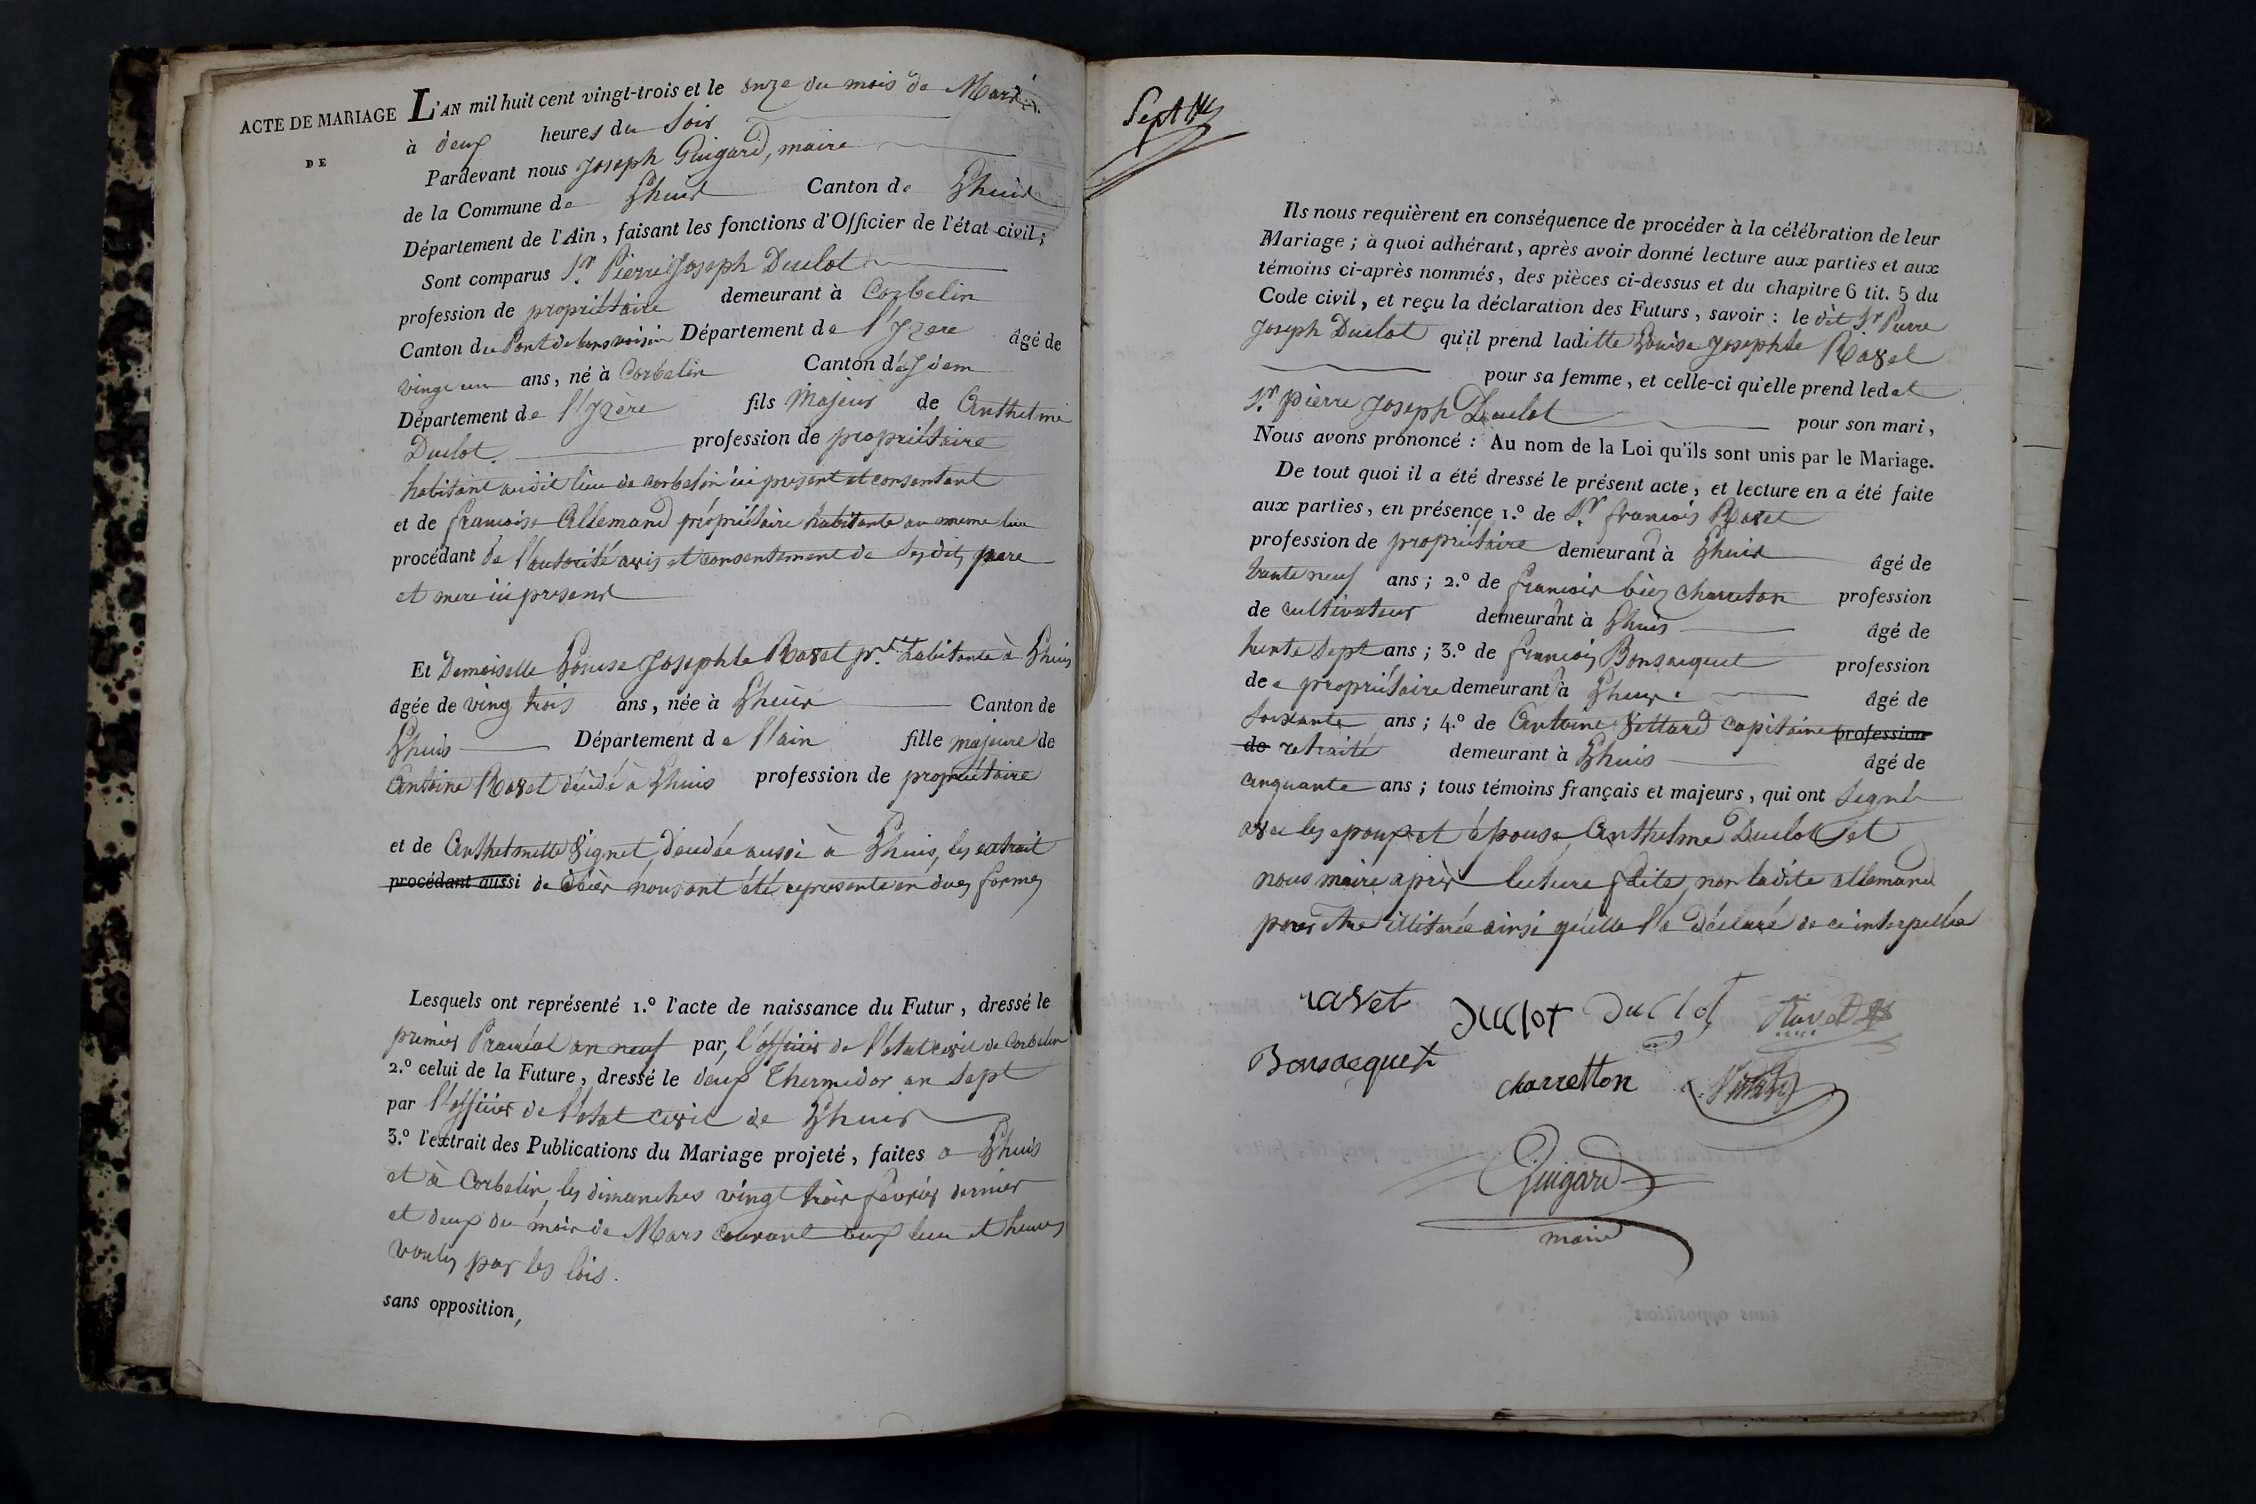 ACTE DE MARIAGE
DE
L'AN mil huit cent vingt-trois et le onze du mois de Mars
à deux heures du Soir
Pardevant nous Joseph Guigard, maire
de la Commune de Lhuis Canton de Lhuis
Département de l'Ain, faisant les fonctions d'Officier de l'état civil;
Sont comparus Sr. Pierre Joseph Duclot
profession de propriétaire demeurant à Corbelin
Canton du Pont de bonvoisin Département de l'Izere âgé de
vingt un ans, né à Corbelin Canton d Idem
Département de l'Izère fils Majeur de Anthelme
Duclot. profession de propriétaire
habitant audit lieu de corbelin ici present et consentant
et de francoise Allemand propriétaire habitante au meme lieu
procédant de l'autorité avis et consentement de sesdits pere
et mere ici present
Et Demoiselle Louise Josephte Ravet pre. habitante à Lhuis
âgée de ving trois ans, née à Lhuis Canton de
Lhuis Département de l'ain fille majeure de
Antoine Ravet décédé à Lhuis profession de propriétaire
et de Anthelmette Vignet, décédée aussi à Lhuis, les extrait
procédant aussi de décès nous ont été representé en dues formes
Lesquels ont représenté 1.º l'acte de naissance du Futur, dressé le
premier Prairial an neuf par, l'officier de l'état civil de Corbelin
2.º celui de la Future, dressé le deux Thermidor an Sept
par l'officier de l'état civil de Lhuis
3.º l'extrait des Publications du Mariage projeté, faites a Lhuis
et à Corbelin, les dimanches vingt trois février dernier
et deux du mois de Mars courant aux lieu et heures
voulus par les lois.
sans opposition,
Ils nous requièrent en conséquence de procéder à la célébration de leur
Mariage; à quoi adhérant, après avoir donné lecture aux parties et aux
témoins ci-après nommés, des pièces ci-dessus et du chapitre 6 tit. 5 du
Code civil, et reçu la déclaration des Futurs, savoir: le dit Sr Pierre
Joseph Duclot qu'il prend laditte Louise Josephte Ravet
pour sa femme, et celle-ci qu'elle prend ledit
Sr. pierre Joseph Duclot pour son mari,
Nous avons prononcé: Au nom de la Loi qu'ils sont unis par le Mariage.
De tout quoi il a été dressé le présent acte, et lecture en a été faite
aux parties, en présence 1.º de Sr. francois Ravet
profession de propriétaire demeurant à Lhuis âgé de
trente neuf ans; 2.º de francois charreton profession
de cultivateur demeurant à Lhuis âgé de
trente Sept ans; 3.º de francois Bonsacquet profession
de propriétaire demeurant à Lhuis âgé de
Soixante ans; 4.º de Antoine Vettard capitaine profession
de retraité demeurant à Lhuis âgé de
cinquante ans; tous témoins français et majeurs, qui ont Signé
avec les epoux et épouse, Anthelme Duclot et
nous maire après lecture faite, non ladite allemand
pour etre illitérée ainsi qu'elle l'a déclaré de ce interpellée
ravet Duclot Duclot Ravet
Bonsacquet charretton
Guigard
maire